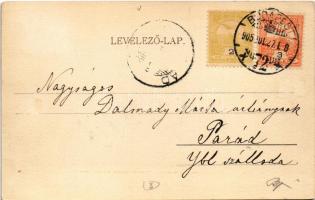 LEVELEZŐ-LAP.
BUDAPEST
905
Nagyságos
Dalmady Márta úrleánynak
Parád
Ybl szálloda